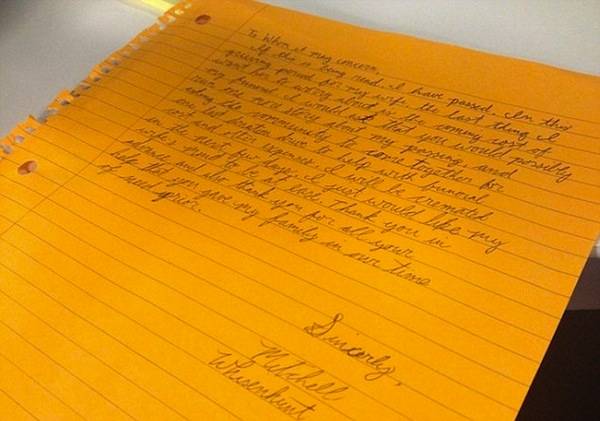 To Whom it may concern,
If this is being read, I have passed. In this
grieving period for my wife the last thing I
want her worry about is the coming cost of
my funeral. I would that you would possibly
run me new story about my passing and
asking the community to come together for
one last donation drive to help with funeral
cost and other expenses. I will be cremated
in the next few days. I just would like my
wife's mind to be at ease. Thank you in
advance and also thank you for all your
help that you gave my family in our time
of need prior.
Sincerly,
Mitchell
Whisenhunt